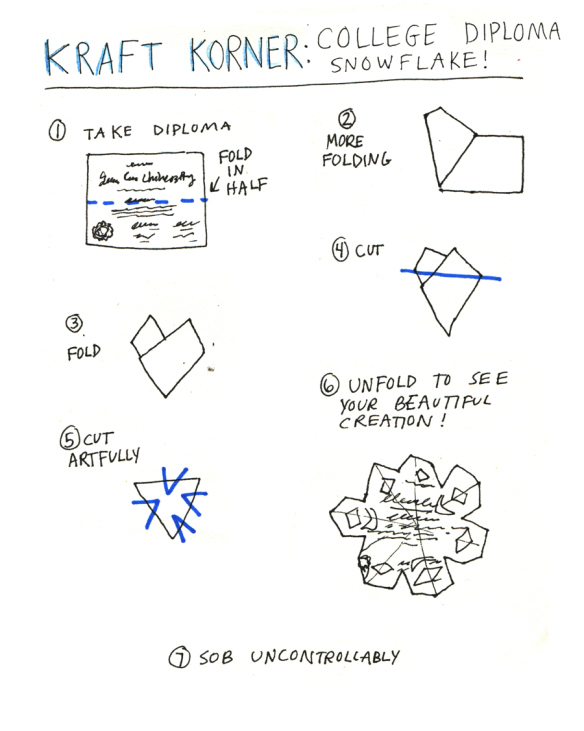 KRAFT KORNER: COLLEGE DIPLOMA
SNOWFLAKE!
① TAKE DIPLOMA
FOLD
IN
HALF
②
MORE
FOLDING
③
FOLD
④ CUT
⑤ CUT
ARTFULLY
⑥ UNFOLD TO SEE
YOUR BEAUTIFUL
CREATION!
⑦ SOB UNCONTROLLABLY